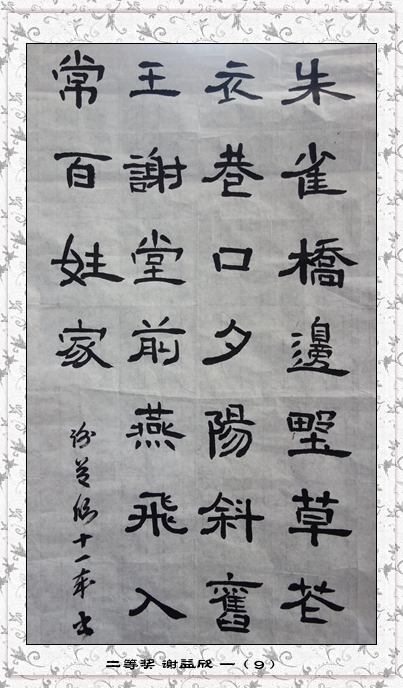 朱雀橋邊野草花
衣巷口夕陽斜舊
王謝堂前燕飛入
常百姓家
谢益欣十一歲书
二等奖 谢益欣 一（9）